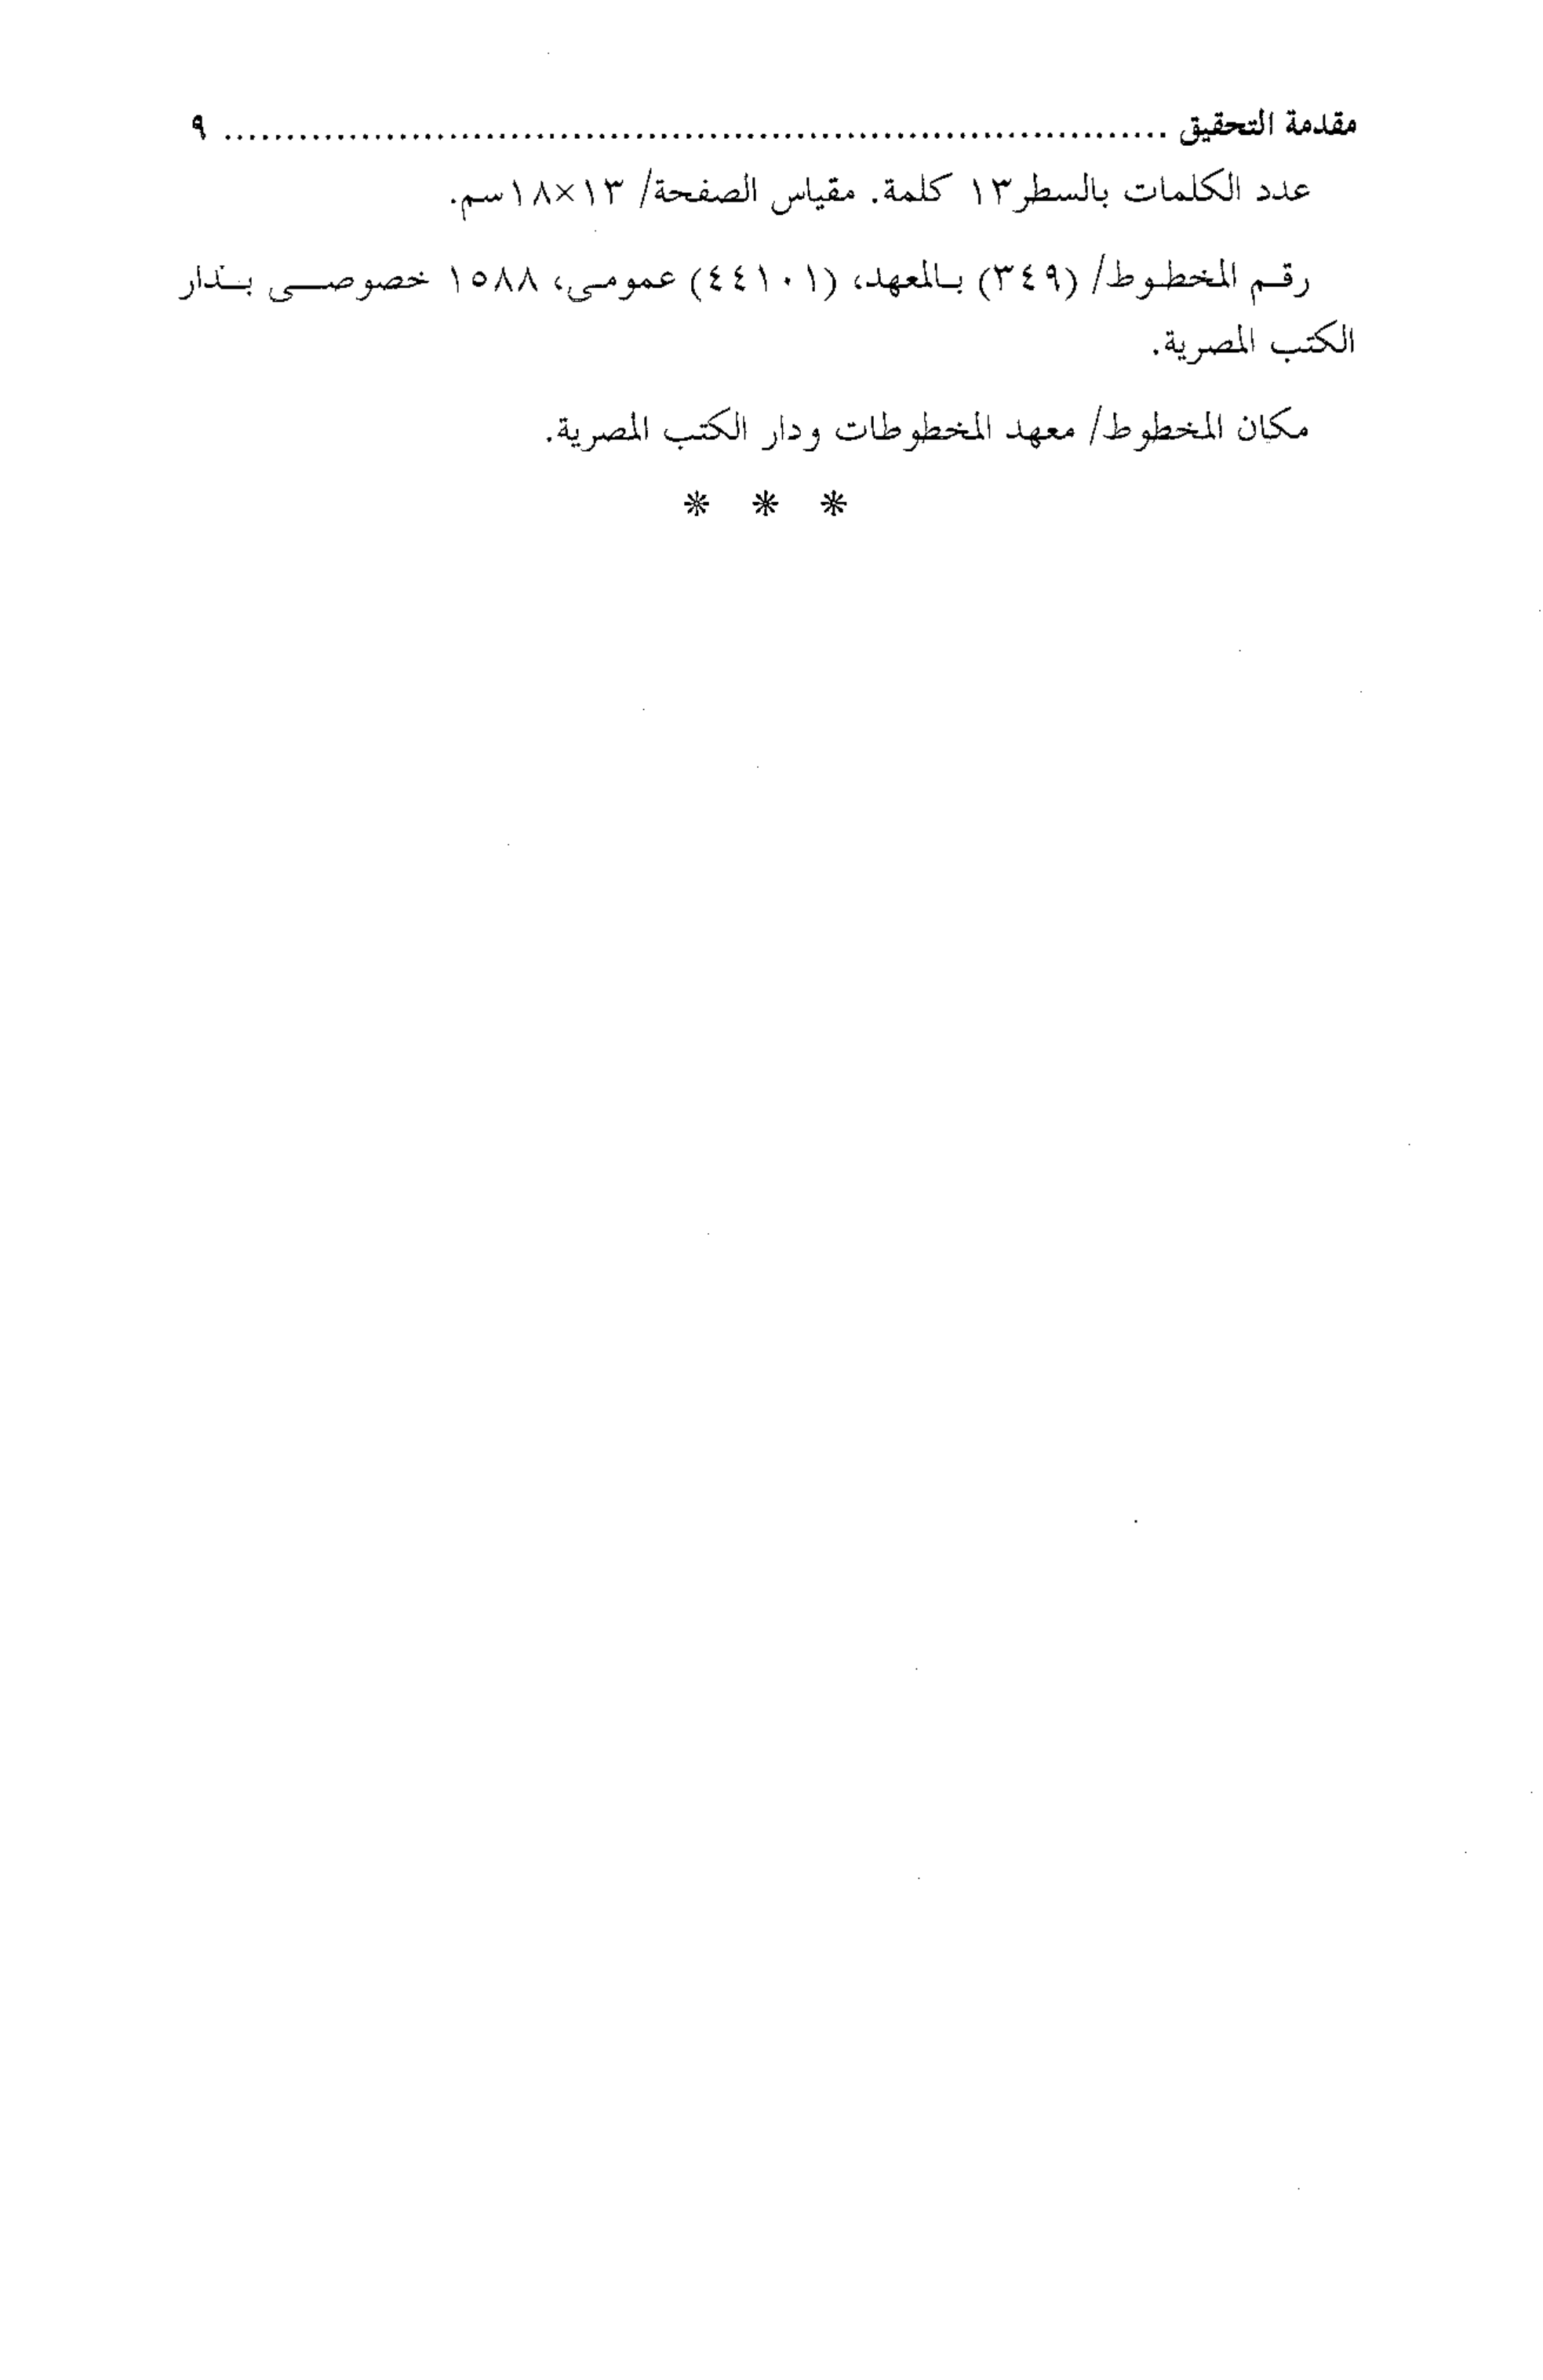 مقدمة التحقيق ........................................................................... ٩
عدد الكلمات بالسطر١٣ كلمة. مقياس الصفحة/ ١٣×١٨سم.
رقم المخطوط/ (٣٤٩) بالمعهد، (٤٤١٠١) عمومى، ١٥٨٨ خصوصى بدار
الكتب المصرية.
مكان المخطوط/ معهد المخطوطات ودار الكتب المصرية.
* * *